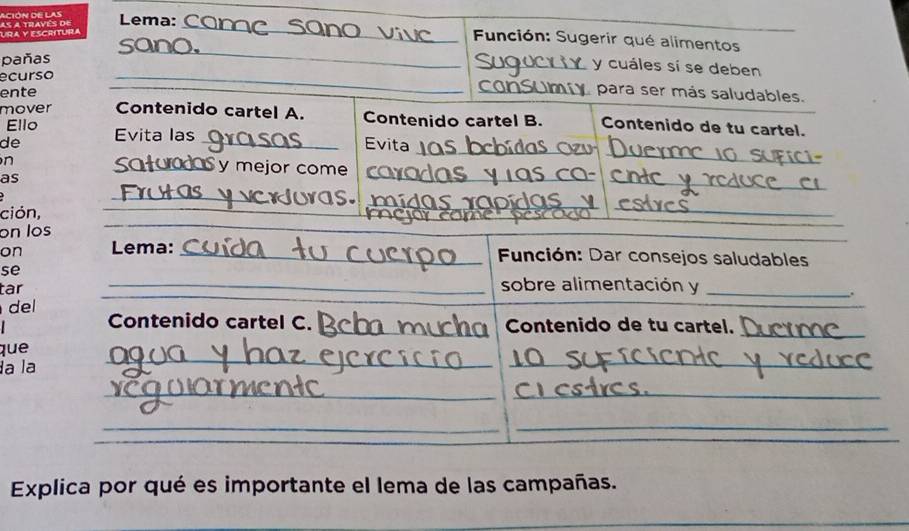 ACIÓN DE LAS
AS A TRAVÉS DE
URA Y ESCRITURA
pañas
ecurso
ente
mover
Ello
de
n
as
ción,
on los
on
se
tar
del
que
da la
Lema: come sano vive
sano.
Función: Sugerir qué alimentos
Sugucrir y cuáles sí se deben
consumir para ser más saludables.
Contenido cartel A.
Evita las grasas
saturadas y mejor come
Frutas y verduras.
Contenido cartel B.
Evita las bcbidas azu-
caradas y las co-
midas rapidas y
mejor come pescado
Contenido de tu cartel.
Duerme lo sufici-
ente y reduce el
estres
Lema: cuida tu cuerpo
Función: Dar consejos saludables
sobre alimentación y ________.
Contenido cartel C. Beba mucha
agua y haz ejercicio
regularmente
Contenido de tu cartel. Duerme
lo suficiente y reduce
el estres.
Explica por qué es importante el lema de las campañas.